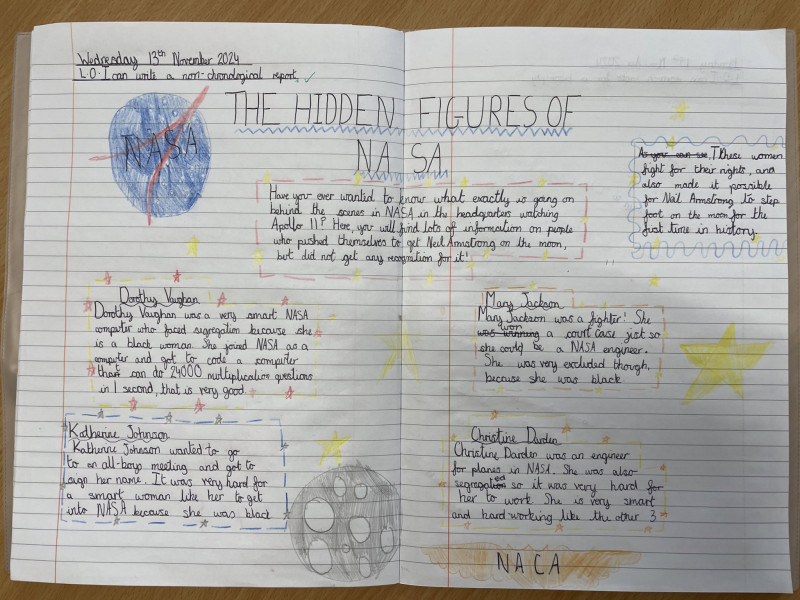 Wednesday 13th November 2024
L.O. I can write a non-chronological report.
NASA
THE HIDDEN FIGURES OF
NASA
Have you ever wanted to know what exactly is going on
behind the scenes in NASA in the headquarters watching
Apollo 11? Here, you will find lots of information on people
who pushed themselves to get Neil Armstrong on the moon,
but did not get any recognition for it!
As you can see, These women
fight for their rights, and
also made it possible
for Neil Armstrong to step
foot on the moon for the
first time in history.
Dorothy Vaughan
Dorothy Vaughan was a very smart NASA
computer who faced segregation because she
is a black woman. She joined NASA as a
computer and got to code a computer
that can do 24000 multiplication questions
in 1 second, that is very good.
Mary Jackson
Mary Jackson was a fighter! She
was winning won a court case jist so
she could be a NASA engineer.
She was very excluded though,
because she was black
Katherine Johnson
Katherine Johnson wanted to go
to an all-boys meeting and got to
sign her name. It was very hard for
a smart woman like her to get
into NASA because she was black
Christine Darden
Christine Darden was an engineer
for planes in NASA. She was also
segregated so it was very hard for
her to work. She is very smart
and hard-working like the other 3
NACA